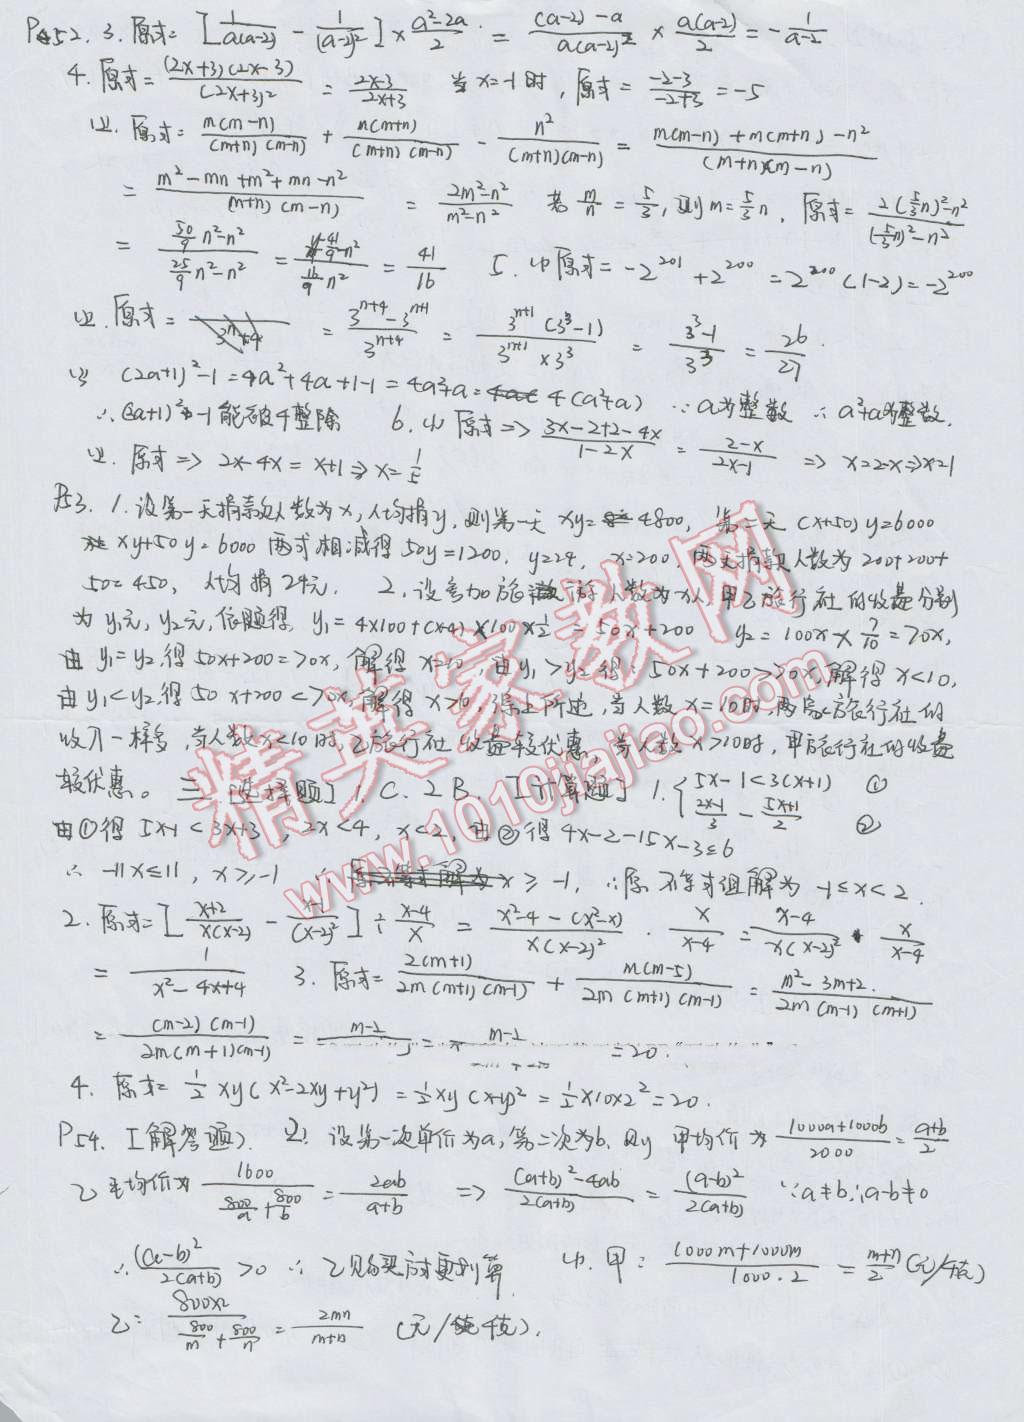 P52. 3. 原式= [1/a(a-2) - 1/(a-2)²] × (a²-2a)/2 = ((a-2)-a)/(a(a-2)²) × a(a-2)/2 = -1/(a-2)
4. 原式= (2x+3)(2x-3)/(2x+3)² = (2x-3)/(2x+3) 当x=-1时, 原式= (-2-3)/(-2+3) = -5
(2). 原式= m(m-n)/((m+n)(m-n)) + m(m+n)/((m+n)(m-n)) - n²/((m+n)(m-n)) = (m(m-n)+m(m+n)-n²)/((m+n)(m-n))
= (m²-mn+m²+mn-n²)/((m+n)(m-n)) = (2m²-n²)/(m²-n²) 若 m/n = 5/3, 则m=5/3 n, 原式= (2(5/3 n)²-n²)/((5/3 n)²-n²)
= (50/9 n²-n²)/(25/9 n²-n²) = (41/9 n²)/(16/9 n²) = 41/16 5. (1)原式= -2²⁰¹+2²⁰⁰ = 2²⁰⁰(1-2) = -2²⁰⁰
(2). 原式= = (3ⁿ⁺⁴-3ⁿ⁺¹)/3ⁿ⁺⁴ = 3ⁿ⁺¹(3³-1)/(3ⁿ⁺¹×3³) = (3³-1)/3³ = 26/27.
(3) (2a+1)²-1=4a²+4a+1-1=4a²+a= 4(a²+a) ∵a为整数 ∴a²+a为整数.
∴(2a+1)²-1能被4整除 6. (1)原式=> (3x-2+2-4x)/(1-2x) = (2-x)/(2x-1) => x=2-x=>x=1
(2). 原式=> 2x-4x=x+1=>x=
P53. 1. 设第一天捐款人数为x, 人均捐y, 则第一天 xy= 4800, 第二天 (x+50)y=6000
xy+50y=6000 两式相减得 50y=1200, y=24, x=200, 两天捐款人数为 200+200+
50=450, 人均捐24元. 2. 设参加旅游人数为x人, 甲乙旅行社的收费分别
为 y₁元, y₂元, 依题得 y₁=4×100+(x-4)×100×1/2 = 50x+200 y₂=100x×7/10=70x,
由 y₁=y₂得 50x+200=70x, 解得 x=10, 由y₁>y₂得: 50x+200>70x, 解得 x<10,
由y₁<y₂得 50x+200<70x, 解得 x>10, 综上所述, 当人数 x=10时, 两家旅行社的
收入一样多, 当人数x<10时, 乙旅行社收费较优惠, 当人数x>10时, 甲旅行社的收费
较优惠。 三 [选择题] 1. C. 2 B. [计算题] 1. { 5x-1<3(x+1) ① (2x-1)/3 - (5x+1)/2 ②
由①得 5x-1<3x+3, 2x<4, x<2, 由②得 4x-2-15x-3≤6
∴ -11x≤11, x≥-1 x≥-1, ∴原不等式组解为 -1≤x<2.
2. 原式=[(x+2)/(x(x-2)) - (x-1)/(x-2)²] ÷ (x-4)/x = (x²-4-(x²-x))/(x(x-2)²) · x/(x-4) = (x-4)/(x(x-2)²) · x/(x-4)
= 1/(x²-4x+4) 3. 原式= 2(m+1)/(2m(m+1)(m-1)) + m(m-5)/(2m(m+1)(m-1)) = (m²-3m+2)/(2m(m-1)(m+1))
= (m-2)(m-1)/(2m(m+1)(m-1)) = m-2 = m-2 =20.
4. 原式= 1/2 xy(x²-2xy+y²) = 1/2 xy(x-y)² = 1/2×10×2²=20.
P54. [解答题]. 2) 设第一次单价为a, 第二次为b, 则 甲均价为 (1000a+1000b)/2000 = (a+b)/2
乙平均价为 1600/(800/a+800/b) = 2ab/(a+b) => ((a+b)²-4ab)/(2(a+b)) = (a-b)²/(2(a+b)) ∵a≠b∴a-b≠0
∴(a-b)²/(2(a+b))>0 ∴ 乙购买方式更划算 (1). 甲: (1000m+1000n)/(1000·2) = (m+n)/2 (元/千克)
乙: 800×2/(800/m+800/n) = 2mn/(m+n) (元/千克).
精英家教网
www.1010jiajiao.com